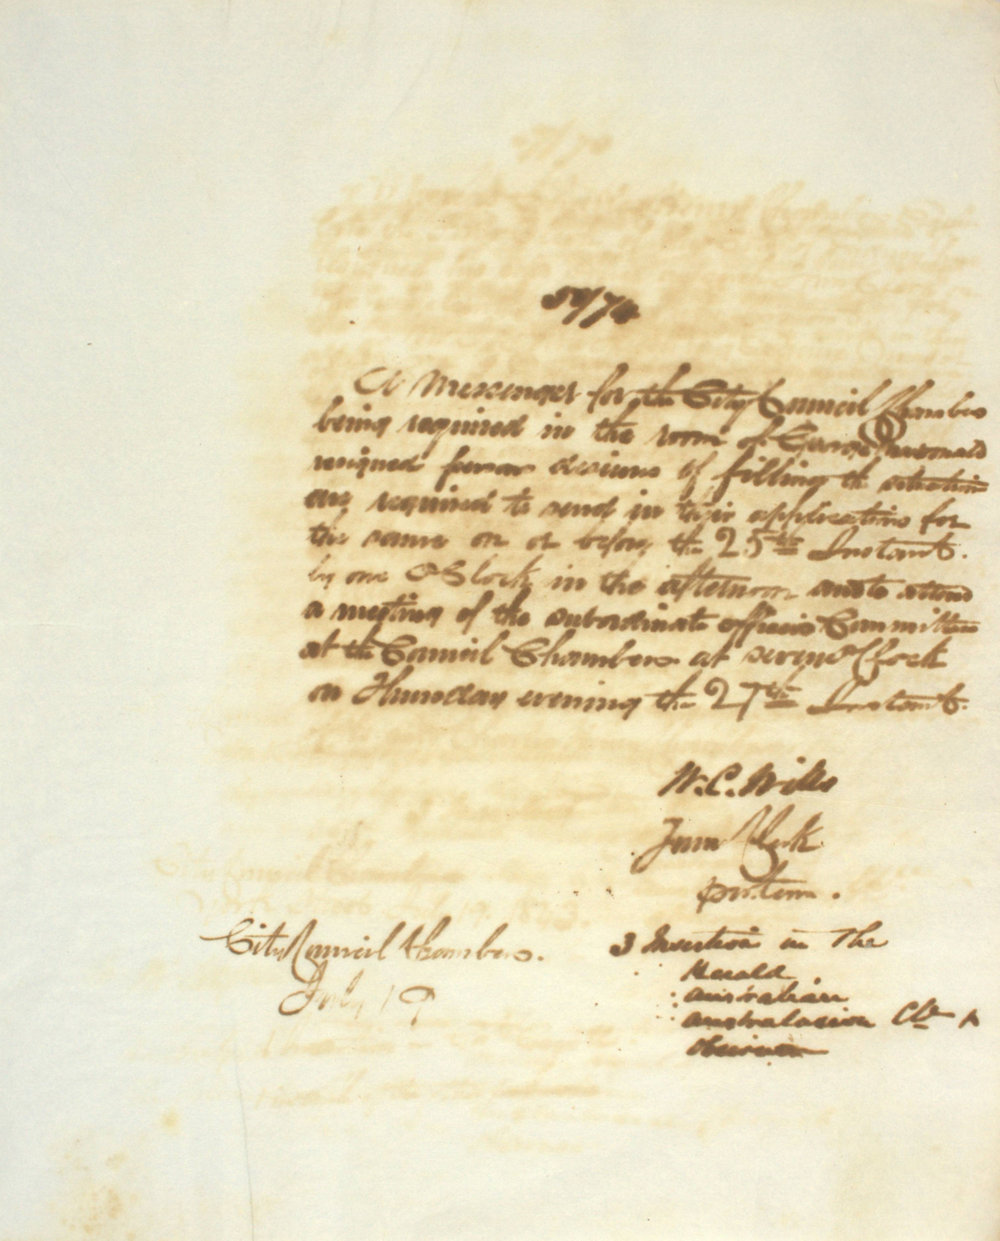 A Messenger for the City Council Chambers
being required in the room of George
resigned persons desirous of filling the situation
are required to send in their applications for
the same on or before the 25th Instant.
by one O'Clock in the afternoon and to attend
a meeting of the subordinate officers Committee
at the Council Chambers at seven O'Clock
on Thursday evening the 27th Instant.
W. C. Wills
Town Clerk
pro. tem.
City Council Chambers.
July 19
3 Insertion in The
Herald
Australian
Australasian
Observer